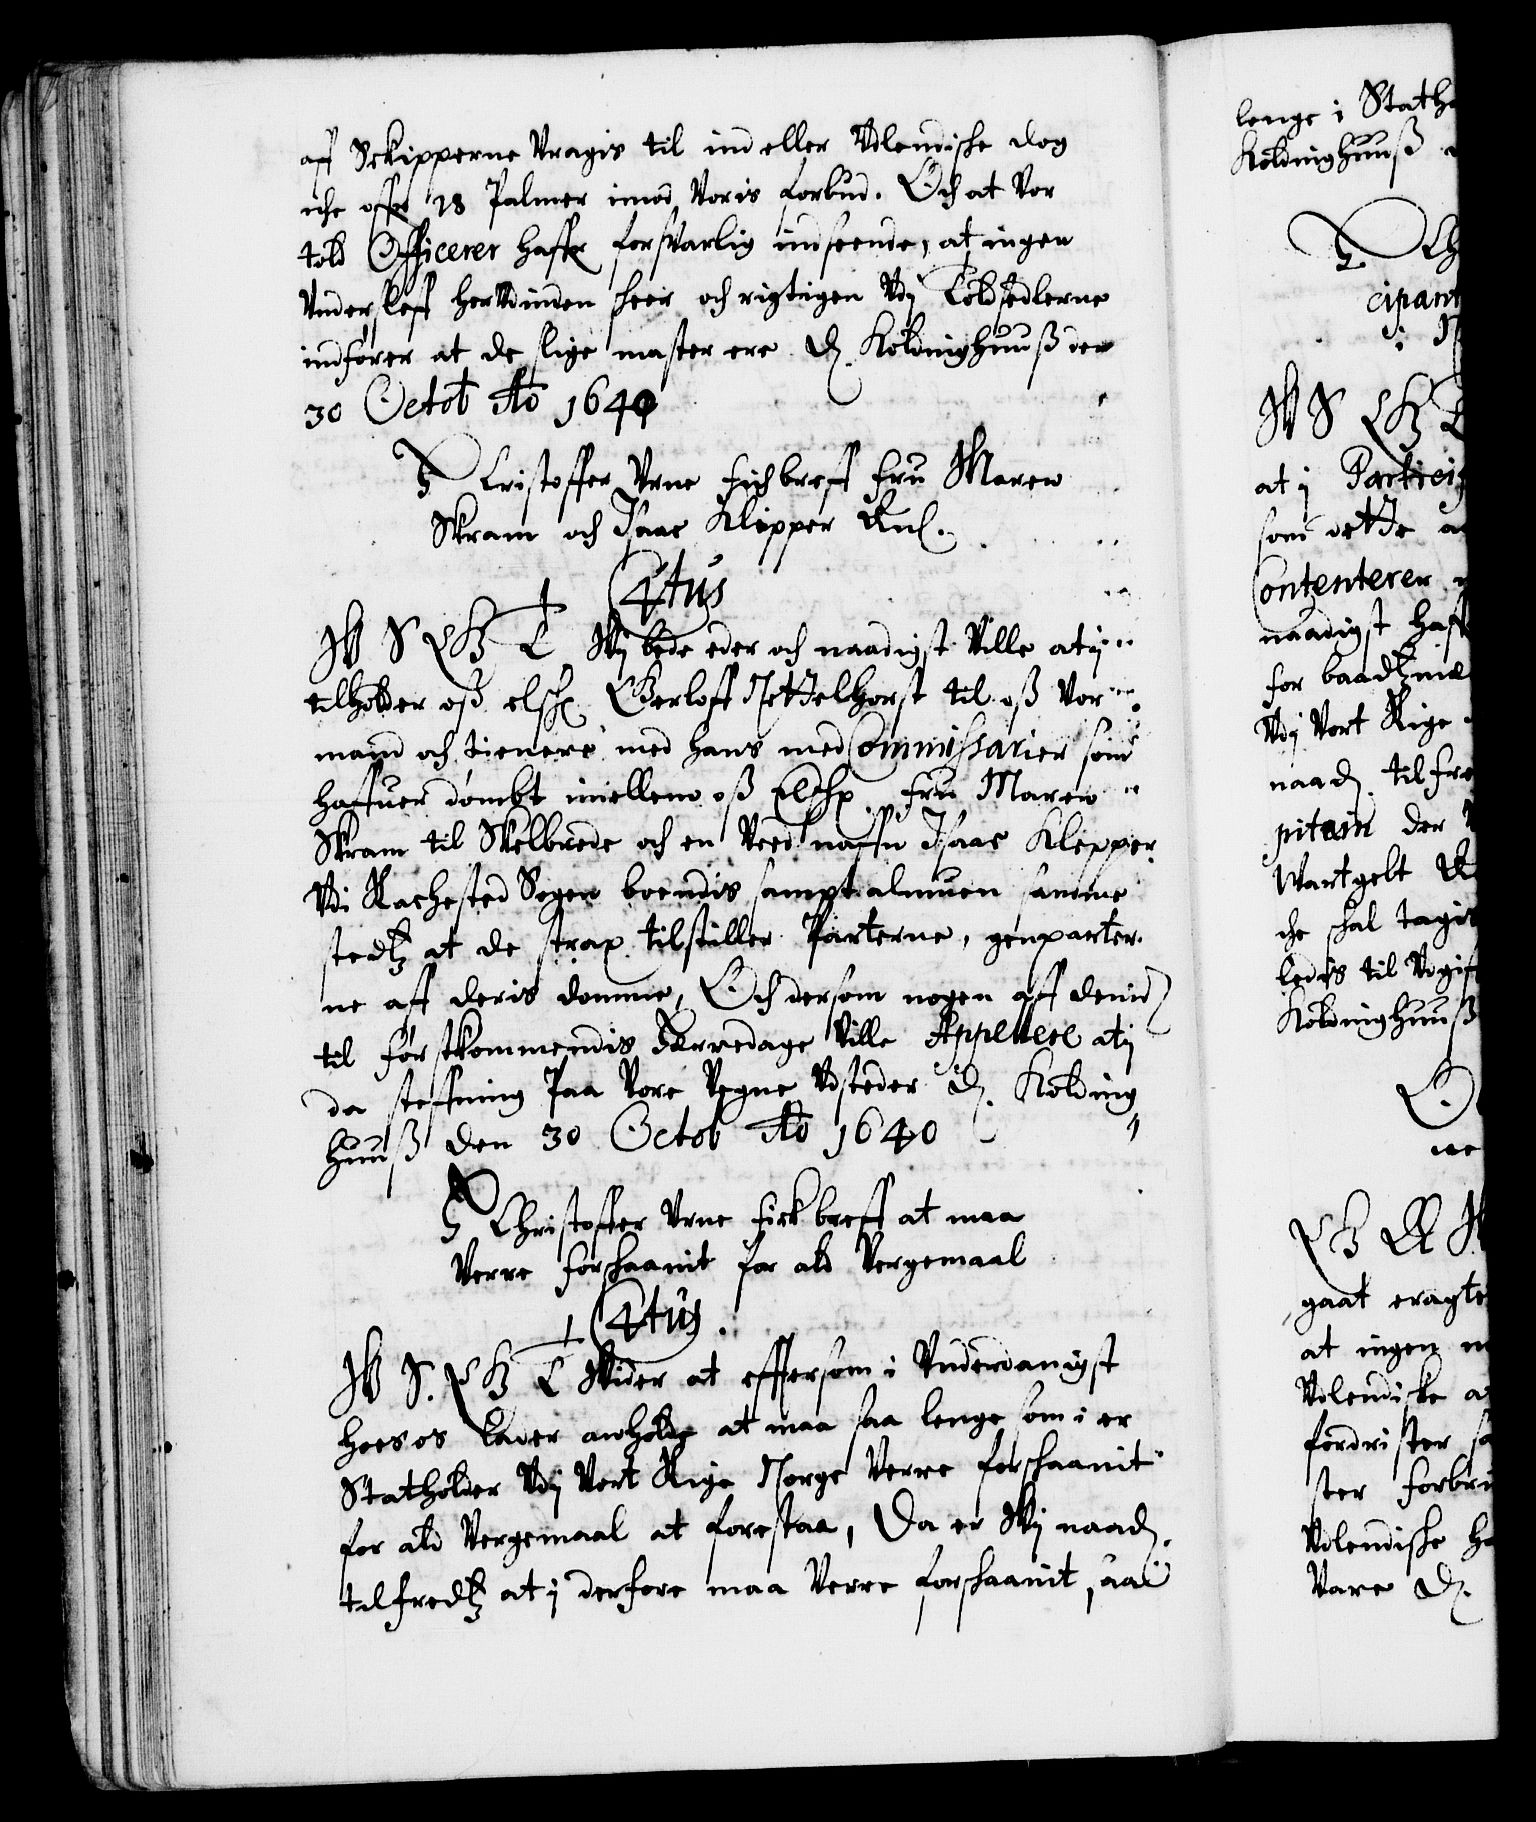 aff Schipperne Vragis til ind eller Vdlendische dog
iche offr 18 Palmer imod Voris forbud. Och at Vor
told Officerer haffr forsvarlig indseende, at ingen
Vndersleff herVdinden scheer och rigtigen Vdj Toldsedlerne
indfører at de slige master ere D. Koldinghuuß den
30 Octob Ao 1640
H Cristoffer Vrne fich breff fru Maren
Skram och Isaac Klepper Anl.
C4tus
W S G T Wj bede eder och naadigst Ville at ij
tilholder oß elsch Gerloff Nettelhorst til oß Vor
mand och tienere med hans medCommissarier som
haffuer dømbt imellem oß Elschx fru Maren
Skram til Skelbrede och en Ved naffn Isaac Klepper
Vdi Rachested Sogen boendis sampt almuen samme
stedtz at de strax tilstiller Parterne, genparter
ne aff deris domme, Och dersom nogen aff dennem
til førstkommendis Herredage Ville Appellere at ij
da steffning Paa Vore Vegne Vdsteder D. Kolding
huuß den 30 Octob Ao 1640
H Christoffer Vrne fick breff at maa
Verre forschaanit for ald Vergemaal
C4tus.
W S. G T Wider at effersom i Vnderdanigst
hoes os lader anholde at maa saa lenge som i er
Statholder Vdj Vort Rige Norge Verre forschaanit
for ald Vergemaal at forestaa, Da er Wj naad.
tilfredtz at i derfore maa Verre forschaanit, saa
lenge i Stath
Koldinghuuß
H Ch
cipant
i N
W S G T
at j Particip
som dette
Contenterer
naadigst haff
for baadtzm
Vdj Vort Rige
naad. tilfre
pitain der
Wartgelt
che schal tagis
ledis til Vdgif
Koldinghuuß
gaat eragte
at ingen
Vdlendiske
fordrister
ster forbr
Vdlendische
Vare D.